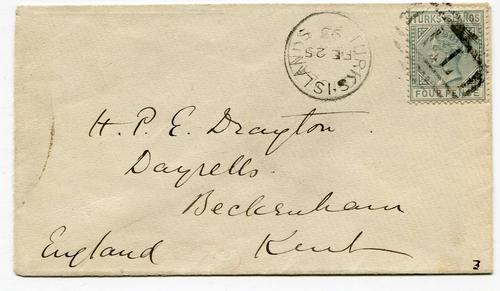 TURKS ISLANDS
FE 25
93
TURKS ISLANDS
FOUR PENCE
H. P. E. Drayton.
Dayrells.
Beckenham
England Kent
3